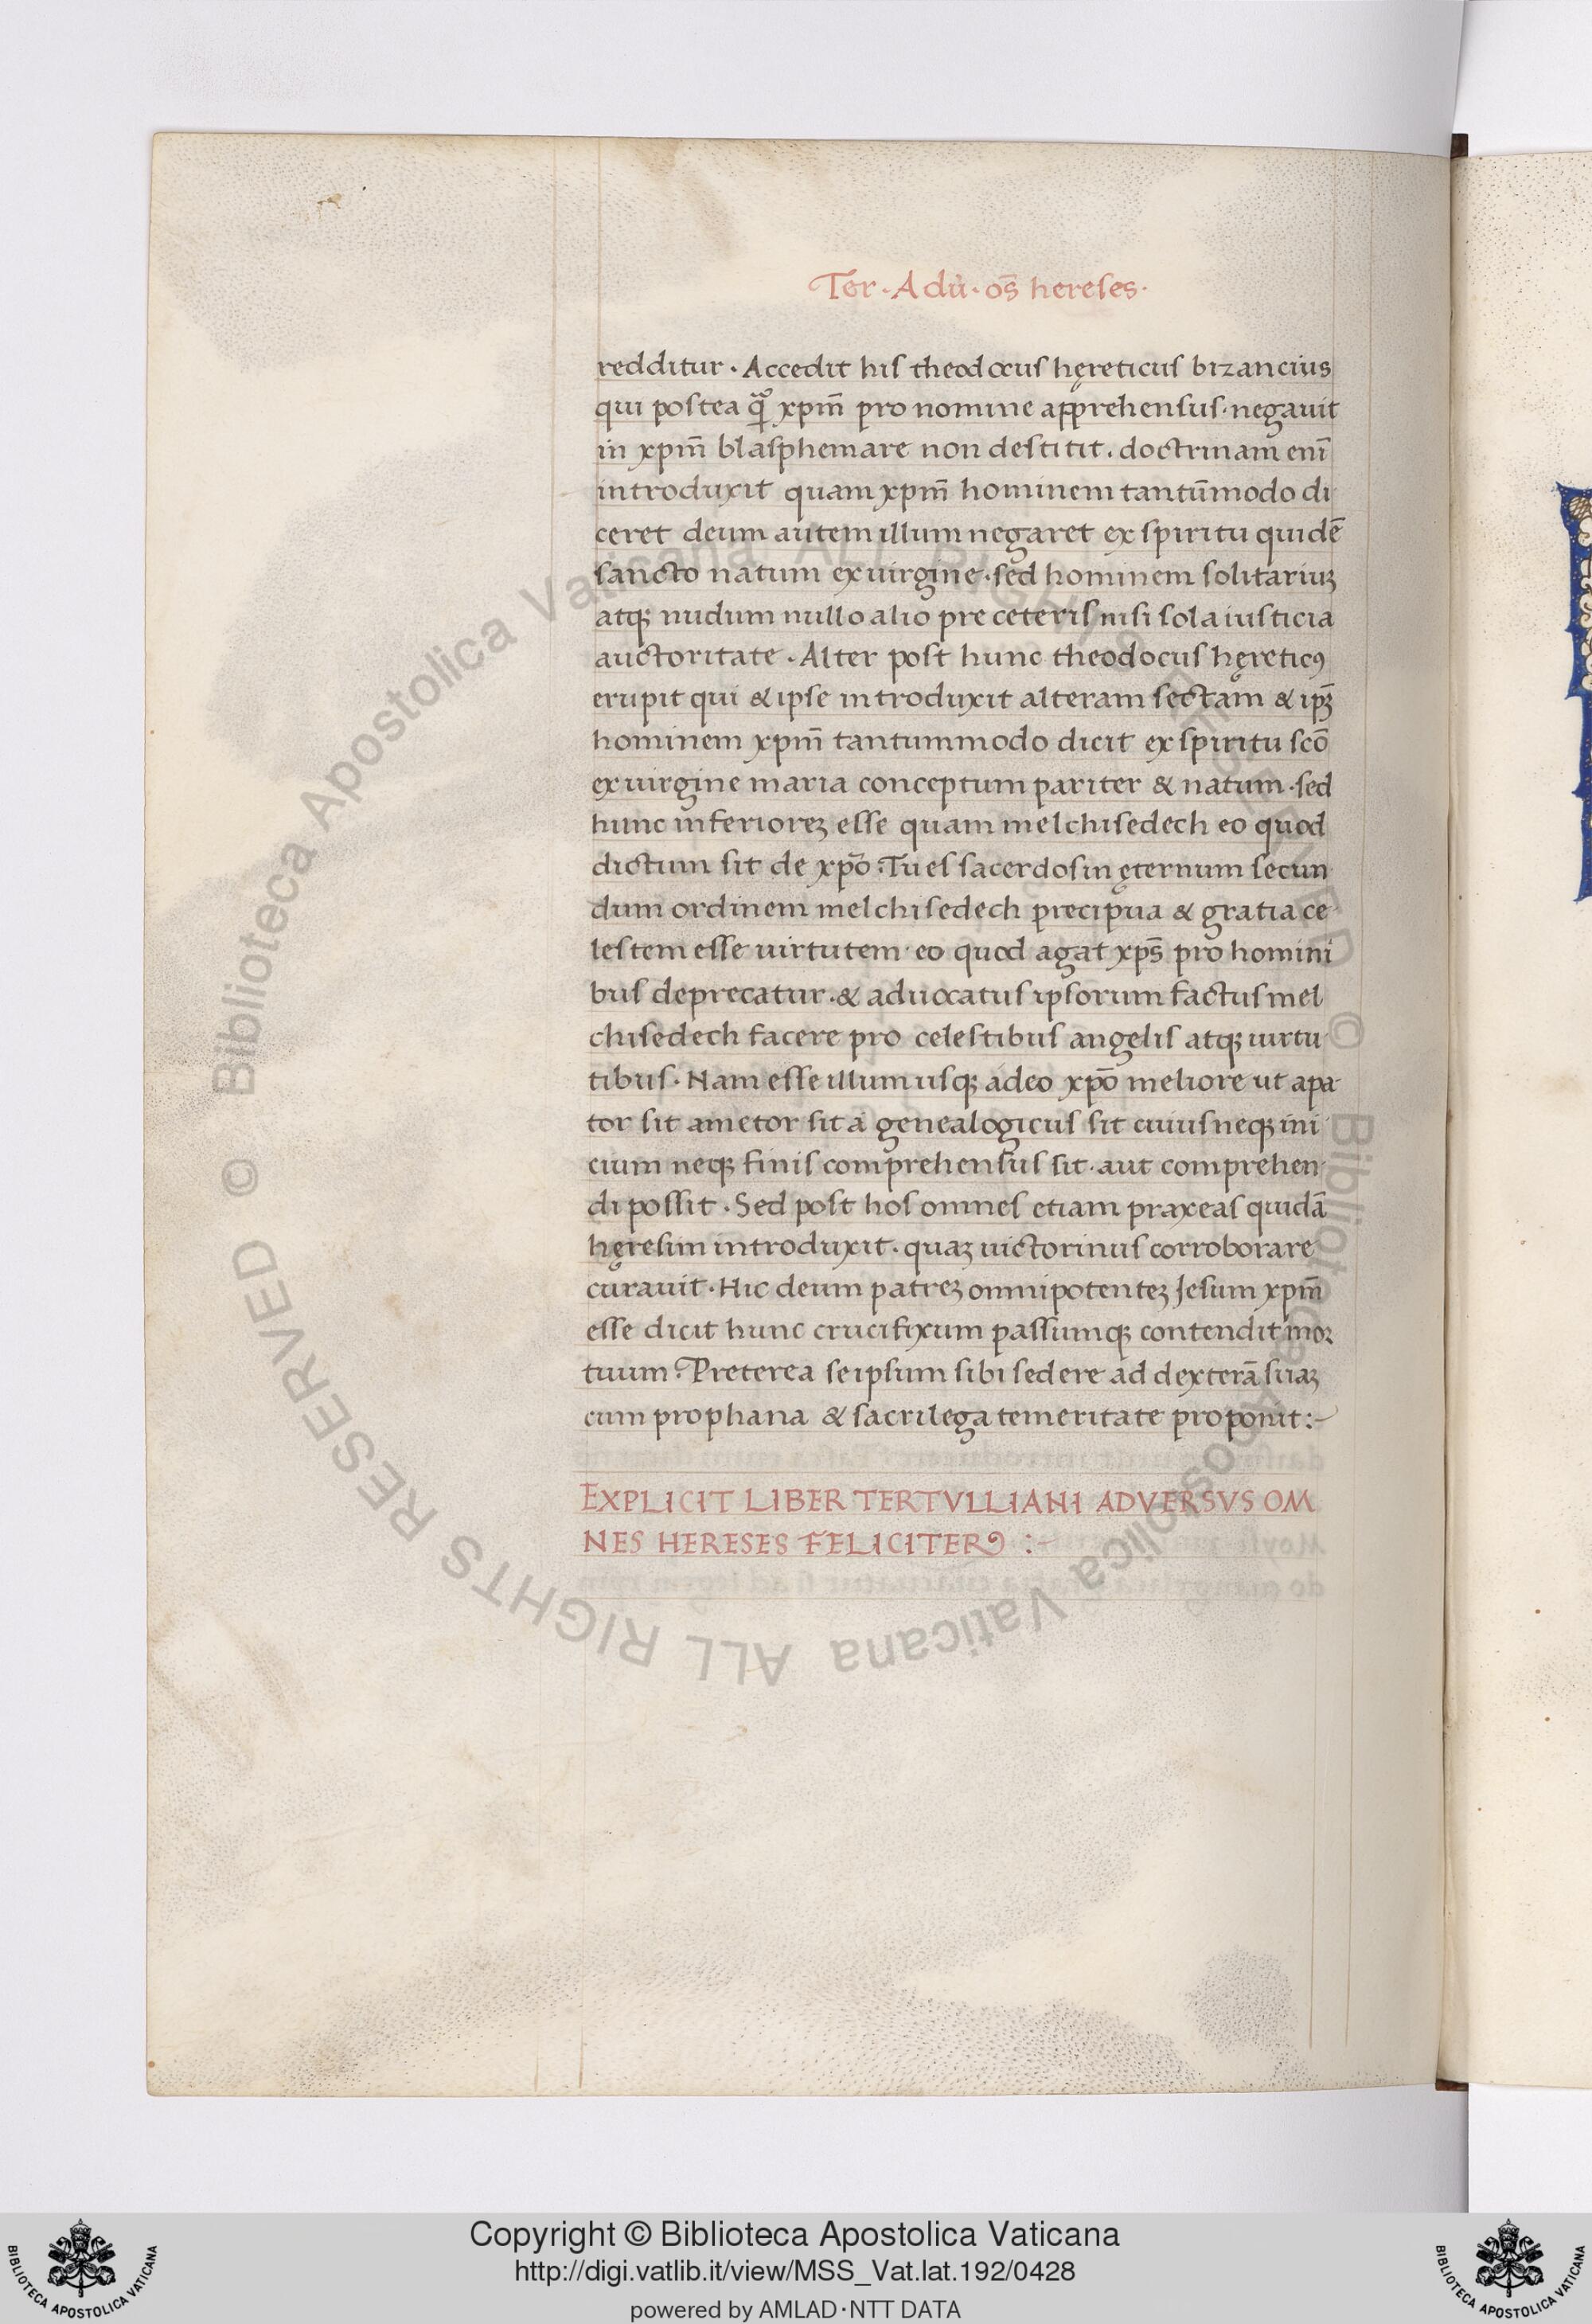 Ter · Adu̇ · os̄ hereses ·
redditur · Accedit his theodocus hęreticus bizancius
qui postea xpm̄ pro nomine apprehensus · negauit
in xpm̄ blasphemare non destitit · doctrinam enī
introduxit quam xpm̄ hominem tantūmodo di
ceret deum autem illum negaret ex spiritu quidē
sancto natum ex uirgine · sed hominem solitariuꝫ
atqꝫ nudum nullo alio pre ceteris nisi sola iusticia
auctoritate · Alter post hunc theodocus hęreticꝯ
erupit qui & ipse introduxit alteram sectam & ip̄ꝫ
hominem xpm̄ tantummodo dicit ex spiritu scō
ex uirgine maria conceptum pariter & natum · sed
hunc inferioreꝫ esse quam melchisedech eo quod
dictum sit de xpō : Tu es sacerdos in ęternum secun
dum ordinem melchisedech precipua & gratia ce
lestem esse uirtutem · eo quod agat xps̄ pro homini
bus deprecatur · & aduocatus ipsorum factus mel
chisedech facere pro celestibus angelis atqꝫ uirtu
tibus · Nam esse illum usqꝫ adeo xpō meliore ut apa
tor sit ametor sit a genealogicus sit cuius neqꝫ ini
cium neqꝫ finis comprehensus sit · aut comprehen
di possit · Sed post hos omnes etiam praxeas quidā
hęresim introduxit · quaꝫ uictorinus corroborare
curauit · Hic deum patreꝫ omnipotenteꝫ Jesum xpm̄
esse dicit hunc crucifixum passumqꝫ contendit mor
tuum : Preterea se ipsum sibi sedere ad dexterā suaꝫ
cum prophana & sacrilega temeritate proponit :-
EXPLICIT LIBER TERTVLLIANI ADVERSVS OM
NES HERESES FELICITER :-
© Biblioteca Apostolica Vaticana ALL RIGHTS RESERVED © Biblioteca Apostolica Vaticana ALL RIGHTS RESERVED
Copyright © Biblioteca Apostolica Vaticana
http://digi.vatlib.it/view/MSS_Vat.lat.192/0428
powered by AMLAD·NTT DATA
BIBLIOTECA APOSTOLICA VATICANA
BIBLIOTECA APOSTOLICA VATICANA